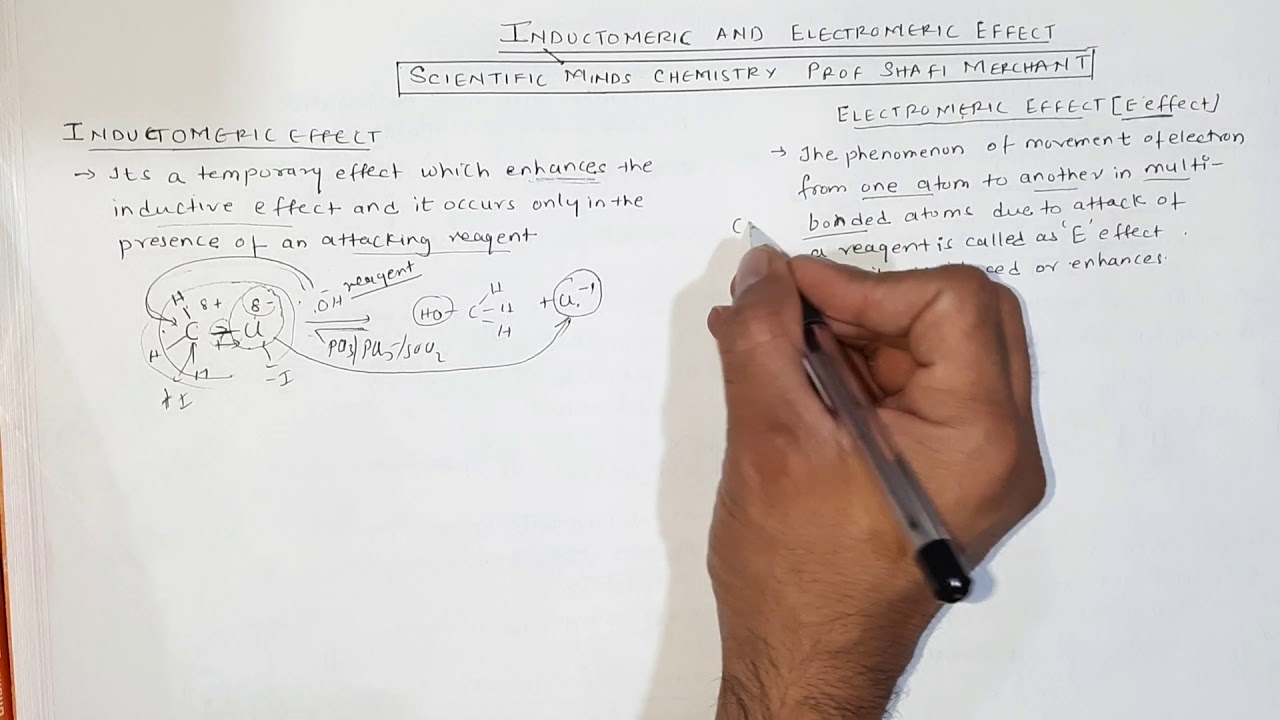 INDUCTOMERIC AND ELECTROMERIC EFFECT
SCIENTIFIC MINDS CHEMISTRY PROF SHAFI MERCHANT
INDUCTOMERIC EFFECT
→ Its a temporary effect which enhances the
inductive effect and it occurs only in the
presence of an attacking reagent
H δ+ δ- OH⁻ reagent
H C Cl
H
+I -I
HO - C H H H + Cl⁻¹
ELECTROMERIC EFFECT [E effect]
→ The phenomenon of movement of electron
from one atom to another in multi-
bonded atoms due to attack of
a reagent is called as 'E' effect.
or enhances.
C